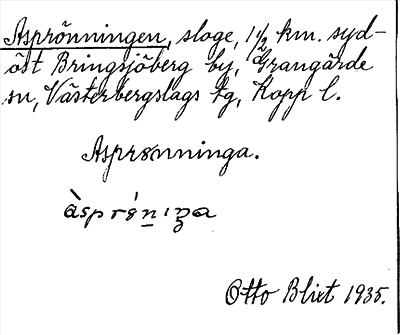 Asprönningen, sloge, 1½ km. syd-
öst Bringsjöberg by, Grangärde
sn, Västerbergslags tg, Kopp l.
Asprønninga.
àsprǿnıŋa
Otto Blixt 1935.